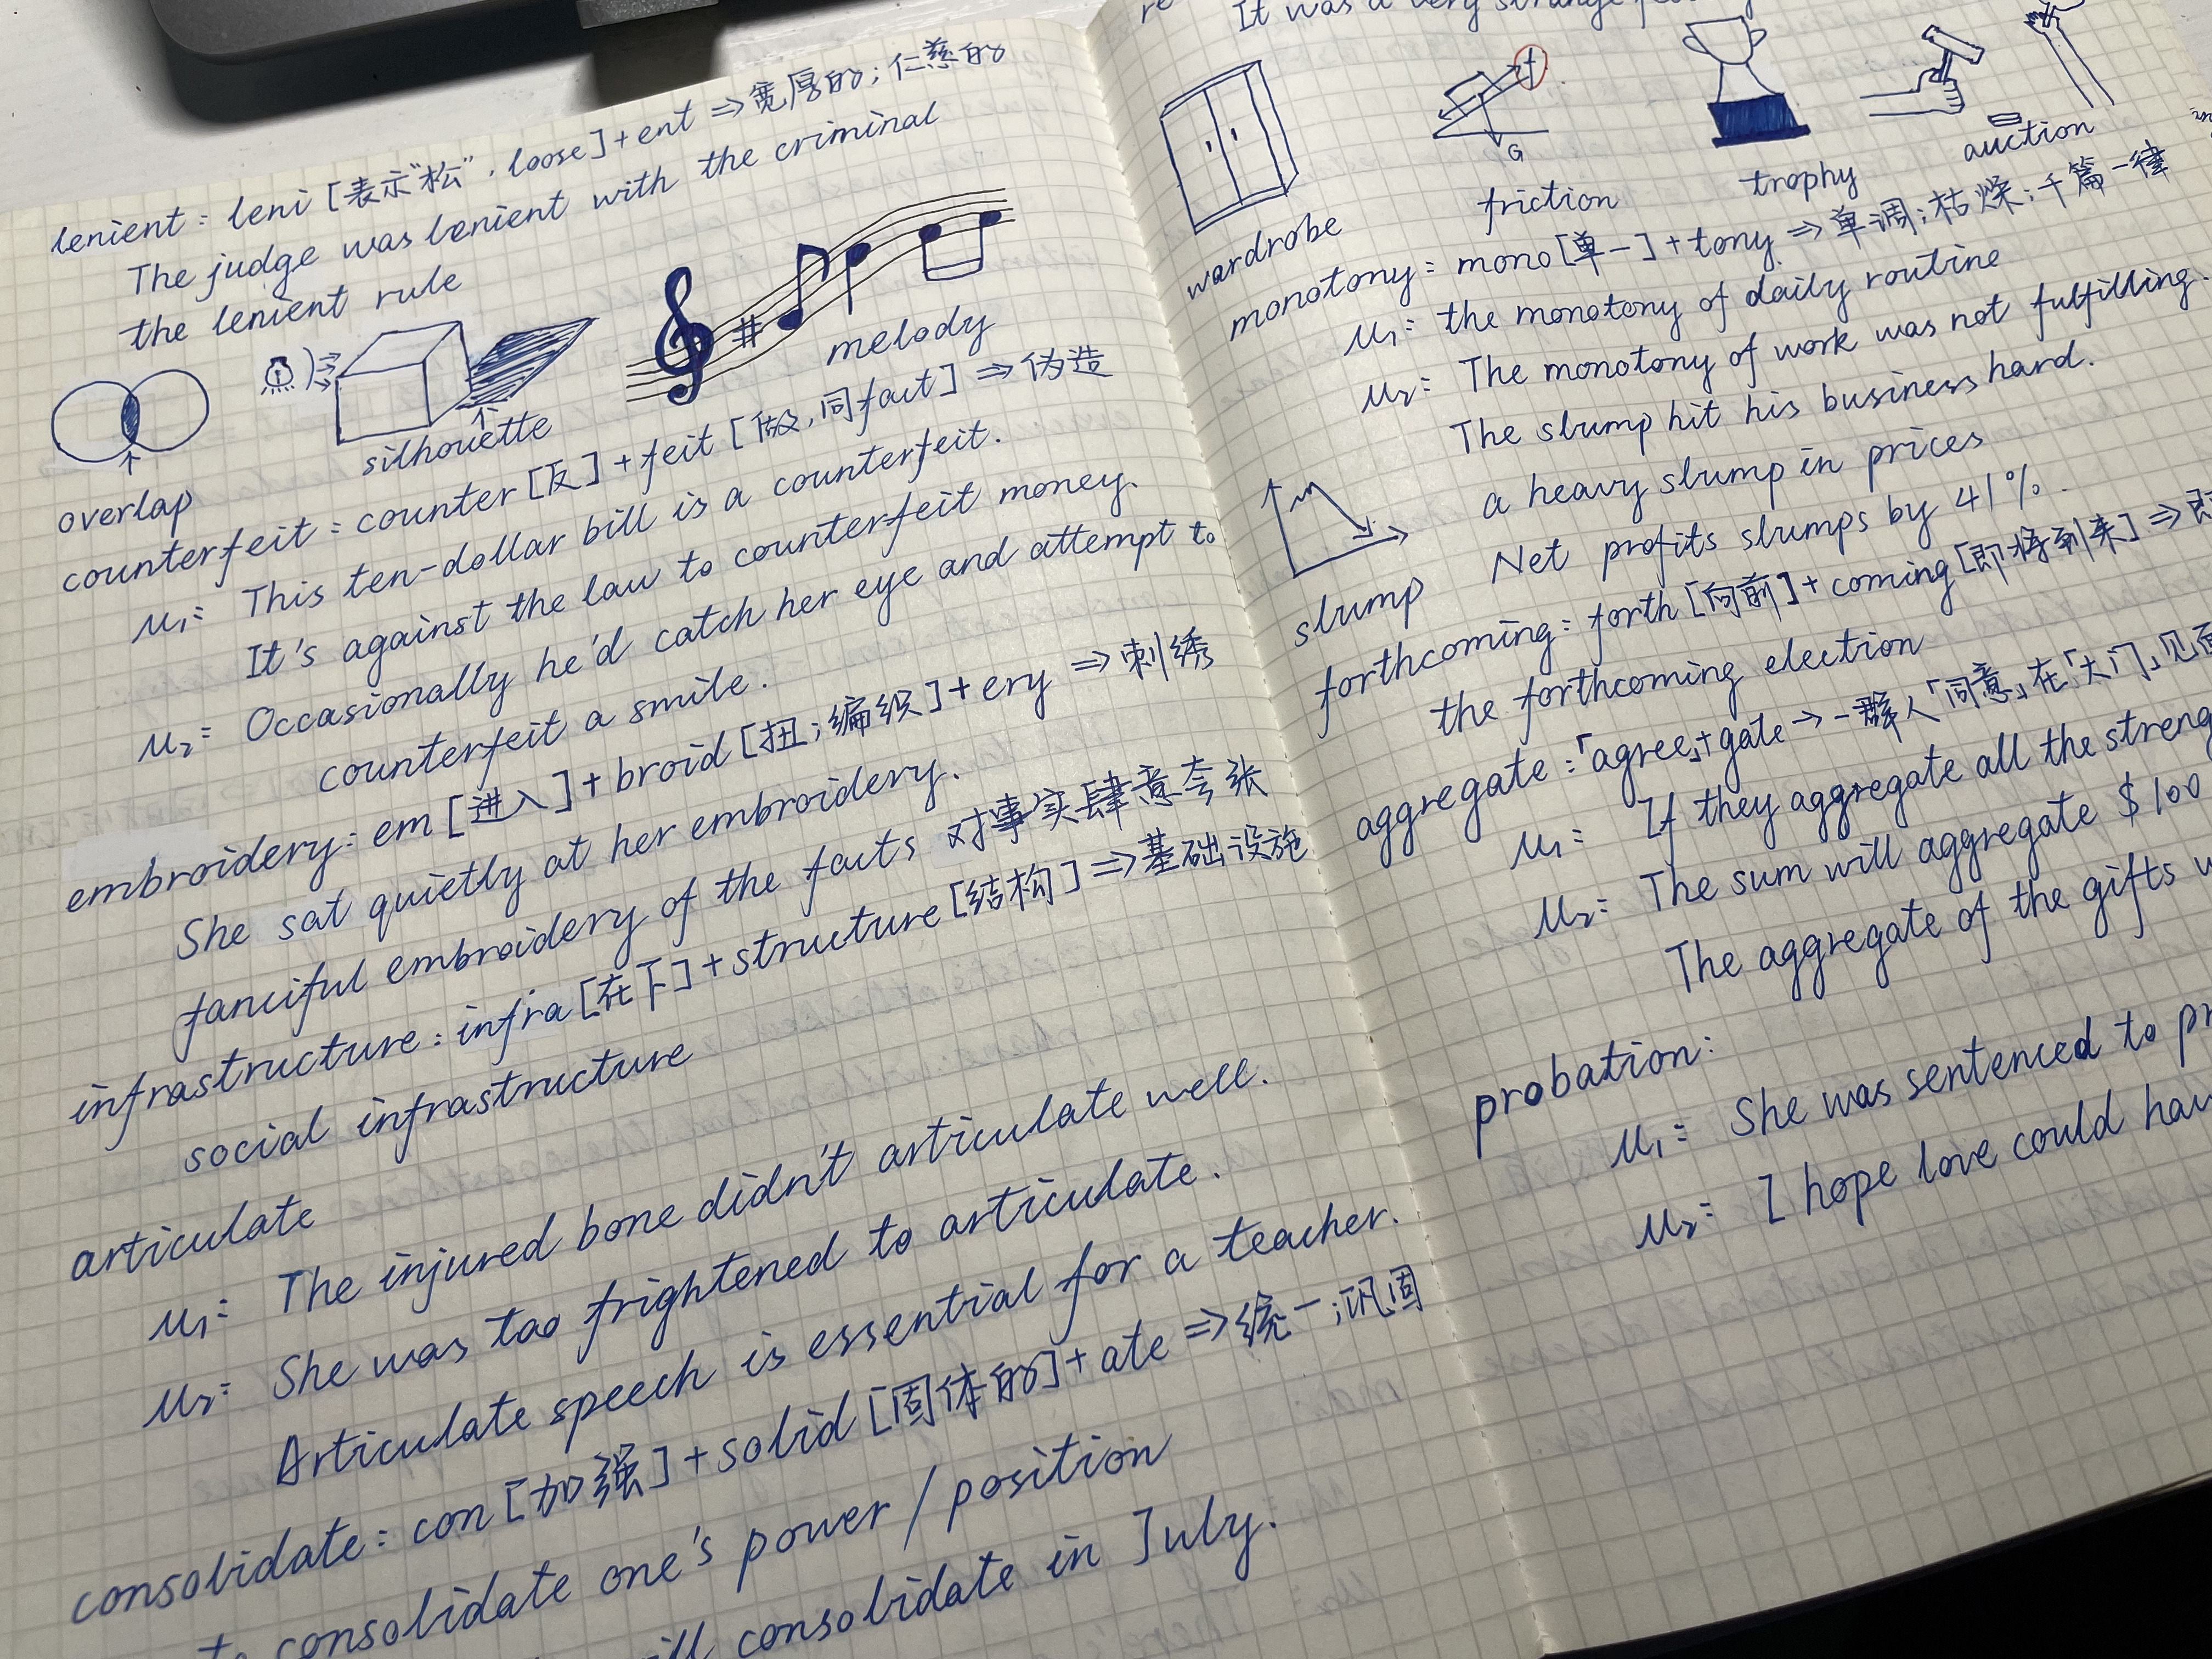 lenient: leni [表示"松", loose] + ent ⇒ 宽厚的; 仁慈的
The judge was lenient with the criminal
the lenient rule
overlap
silhouette
#
melody
counterfeit: counter [反] + feit [做, 同fact] ⇒ 伪造
μ₁: This ten-dollar bill is a counterfeit.
It's against the law to counterfeit money.
μ₂: Occasionally he'd catch her eye and attempt to
counterfeit a smile.
embroidery: em [进入] + broid [扭; 编织] + ery ⇒ 刺绣
She sat quietly at her embroidery.
fanciful embroidery of the facts 对事实肆意夸张
infrastructure: infra [在下] + structure [结构] ⇒ 基础设施
social infrastructure
articulate
μ₁: The injured bone didn't articulate well.
μ₂: She was too frightened to articulate.
Articulate speech is essential for a teacher.
consolidate: con [加强] + solid [固体的] + ate ⇒ 统一; 巩固
to consolidate one's power / position
will consolidate in July.
It was a very strange
wardrobe
f
G
friction
trophy
auction
monotony: mono [单一] + tony ⇒ 单调; 枯燥; 千篇一律
μ₁: the monotony of daily routine
μ₂: The monotony of work was not fulfilling.
The slump hit his business hard.
a heavy slump in prices
Net profits slumps by 41%.
slump
forthcoming: forth [向前] + coming [即将到来] ⇒ 即
the forthcoming election
aggregate: 「agree」+ gate → 一群人「同意」在「大门」见面
μ₁: If they aggregate all the streng
μ₂: The sum will aggregate $100
The aggregate of the gifts w
probation:
μ₁: She was sentenced to pr
μ₂: I hope love could hav